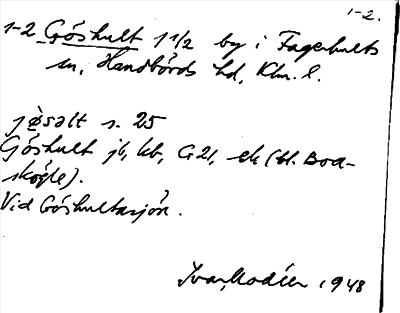 1-2.
1-2 Göshult 1 1/2 by i Fagerhults
sn, Handbörds hd, Klm. l.
jø̀salt s. 25
Göshult jb, kb, G21, ek (bl. Boa-
skögle).
Vid Göshultasjön.
Ivar Modéer 1948